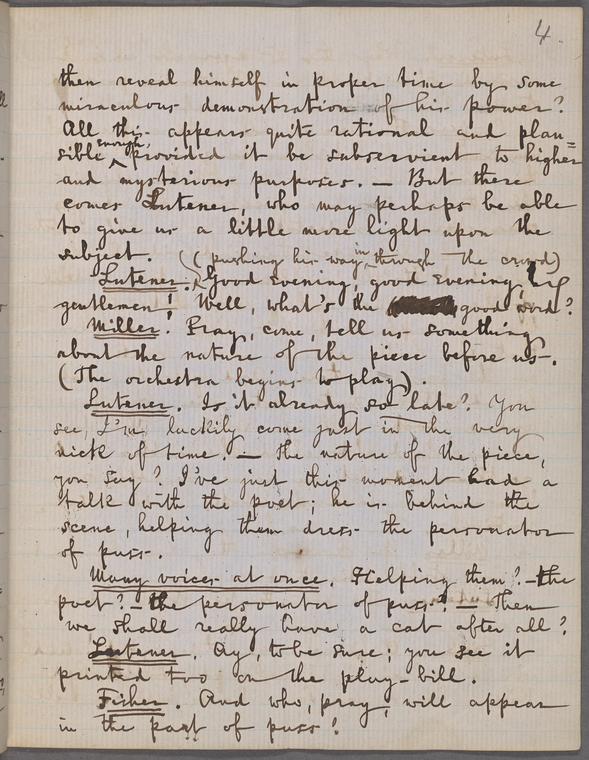 4.
then reveal himself in proper time by some
miraculous demonstration of his power?
All this appears quite rational and plau=
sible enough, provided it be subservient to higher
and mysterious purposes. — But there
comes Lutener, who may perhaps be able
to give us a little more light upon the
subject. (pushing his way in through the crowd)
Lutener. Good Evening, good Evening,
gentlemen! Well, what's the good word?
Miller. Pray, come, tell us something
about the nature of the piece before us.
(The orchestra begins to play).
Lutener. Is it already so late? You
see, I'm luckily come just in the very
nick of time. — The nature of the piece,
you say? I've just this moment had a
talk with the poet; he is behind the
scene, helping them dress the personator
of puss.
Many voices at once. Helping them? — the
poet? — the personator of puss? — Then
we shall really have a cat after all?
Lutener. Ay, to be sure; you see it
printed too on the play-bill.
Fisher. And who, pray, will appear
in the part of puss?